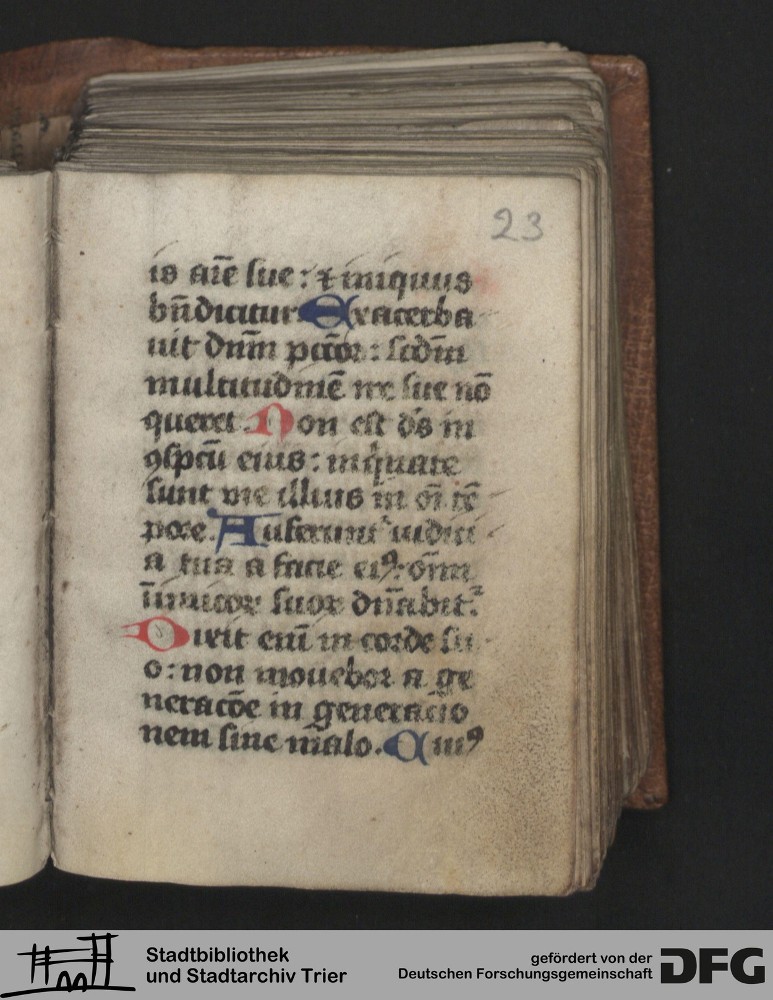 23
is aīe sue : ⁊ iniquus
bn̄dicitur Exacerba
uit dn̄m pc̄cōꝛ : scd̄m
multitudinē ire sue nō
queret . Non est dš in
ꝯspcū eius : inq̇nate
sunt vie illius in oī tē
poꝛe . Auferunt᷑ iudici
a tua a facie eiꝰ : om̄iū
inimicoꝝ suoꝝ dn̄abit᷑ .
Dixit enī in coꝛde su
o : non mouebor a ge
neracōe in generacio
nem sine malo . Cuiꝰ
Stadtbibliothek
und Stadtarchiv Trier
gefördert von der
Deutschen Forschungsgemeinschaft
DFG